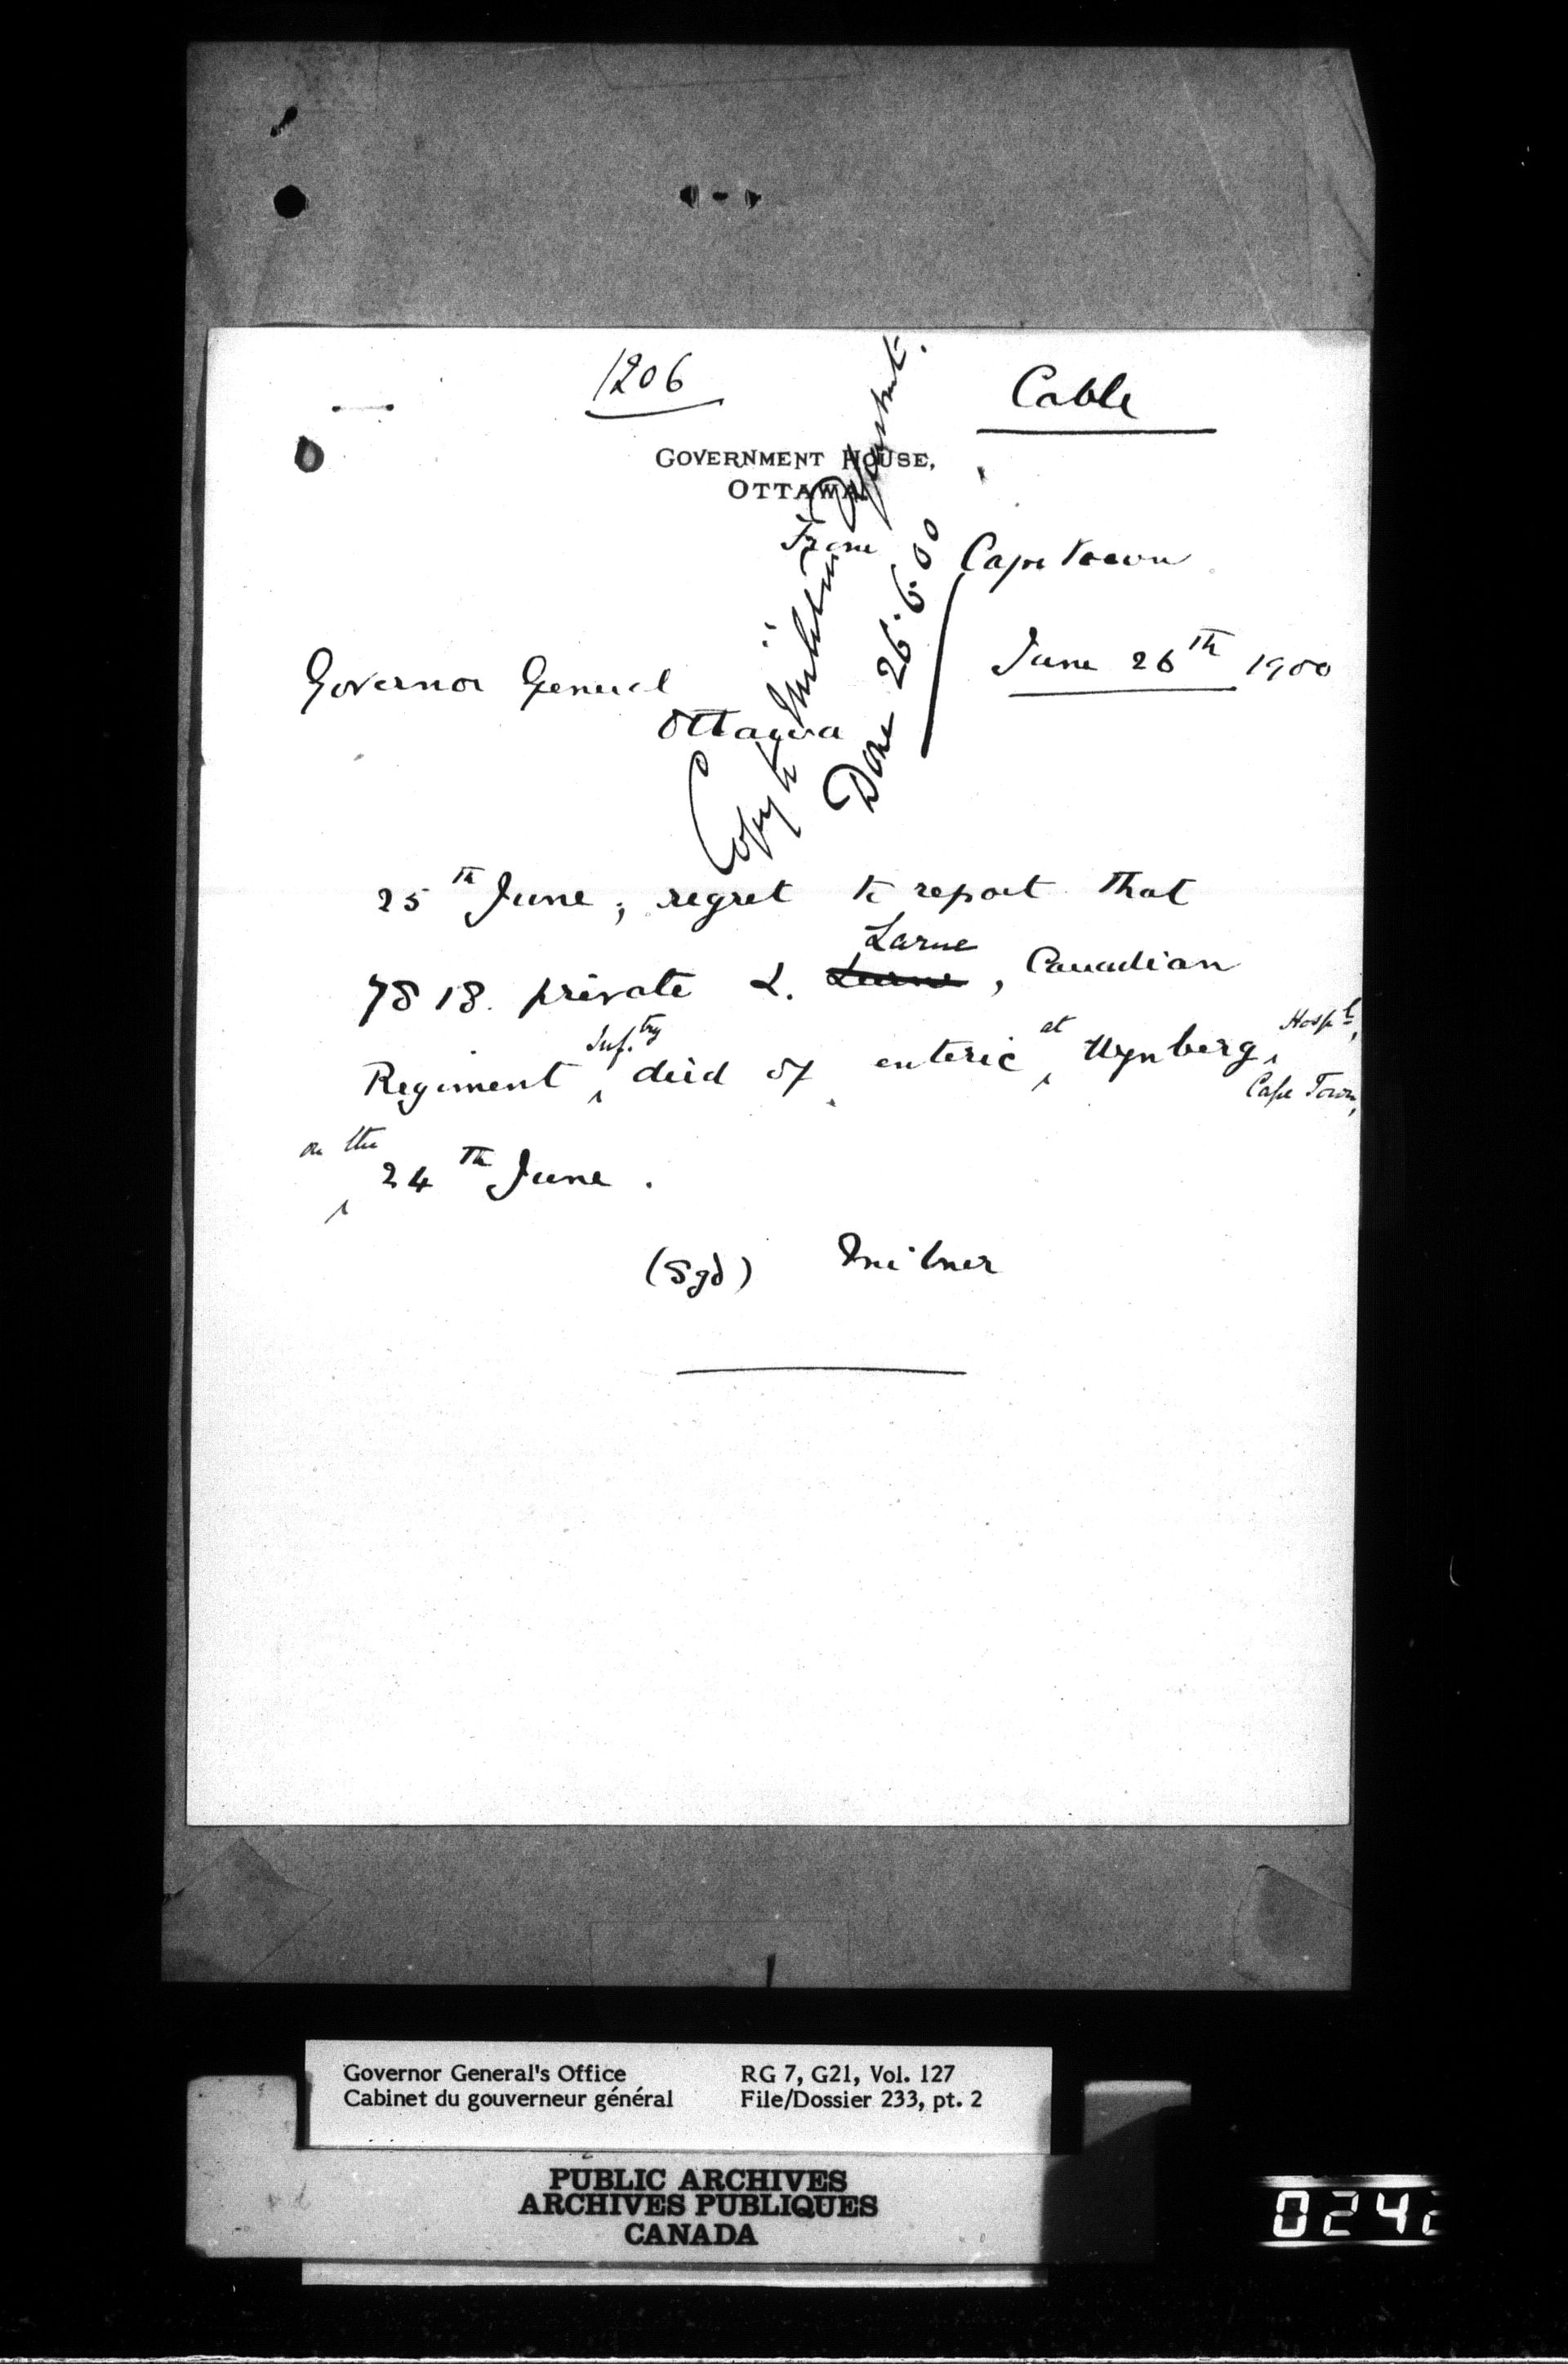 1206
Cable
GOVERNMENT HOUSE,
OTTAWA
From Cape Town
June 26th 1900
Governor General
Ottawa
Copy to Militia Department.
Done 26.6.00
25th June; regret to report that
7818. private L. Larue Larue, Canadian
Regiment Inf.try died of enteric at Wynberg, Hosp.l,
Cape Town,
on the 24th June.
(Sgd) Milner
Governor General's Office
Cabinet du gouverneur général
RG 7, G21, Vol. 127
File/Dossier 233, pt. 2
PUBLIC ARCHIVES
ARCHIVES PUBLIQUES
CANADA
0242